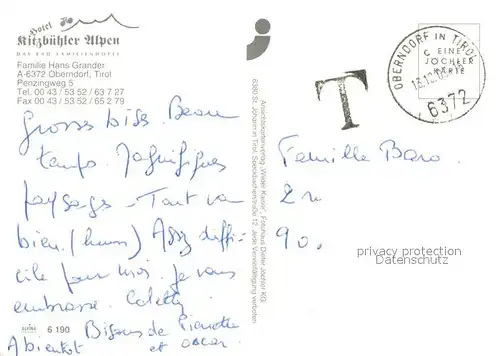 Hotel
Kitzbühler Alpen
DAS BAD FAMILIENHOTEL
Familie Hans Grander
A-6372 Oberndorf, Tirol
Penzingweg 5
Tel. 00 43 / 53 52 / 63 7 27
Fax 00 43 / 53 52 / 65 2 79
Grosses bises. Beau
temps. Magnifiques
paysages - Tout va
bien. (hum) Assz diffi-
cile pour moi. Je vous
embrasse. Coletty
Bisous de Pierrette
A bientot et oscar.
ALPINA 6 190
Ansichtskartenverlag "Wilder Kaiser" / Fotohaus Dieter Jöchler KG
6380 St. Johann in Tirol, Speckbacherstraße 12, Jede Vervielfältigung verboten
T
OBERNDORF IN TIROL
6372
EINE
JÖCHLER
KARTE
Famille Baro.
2
90.
privacy protection
Datenschutz